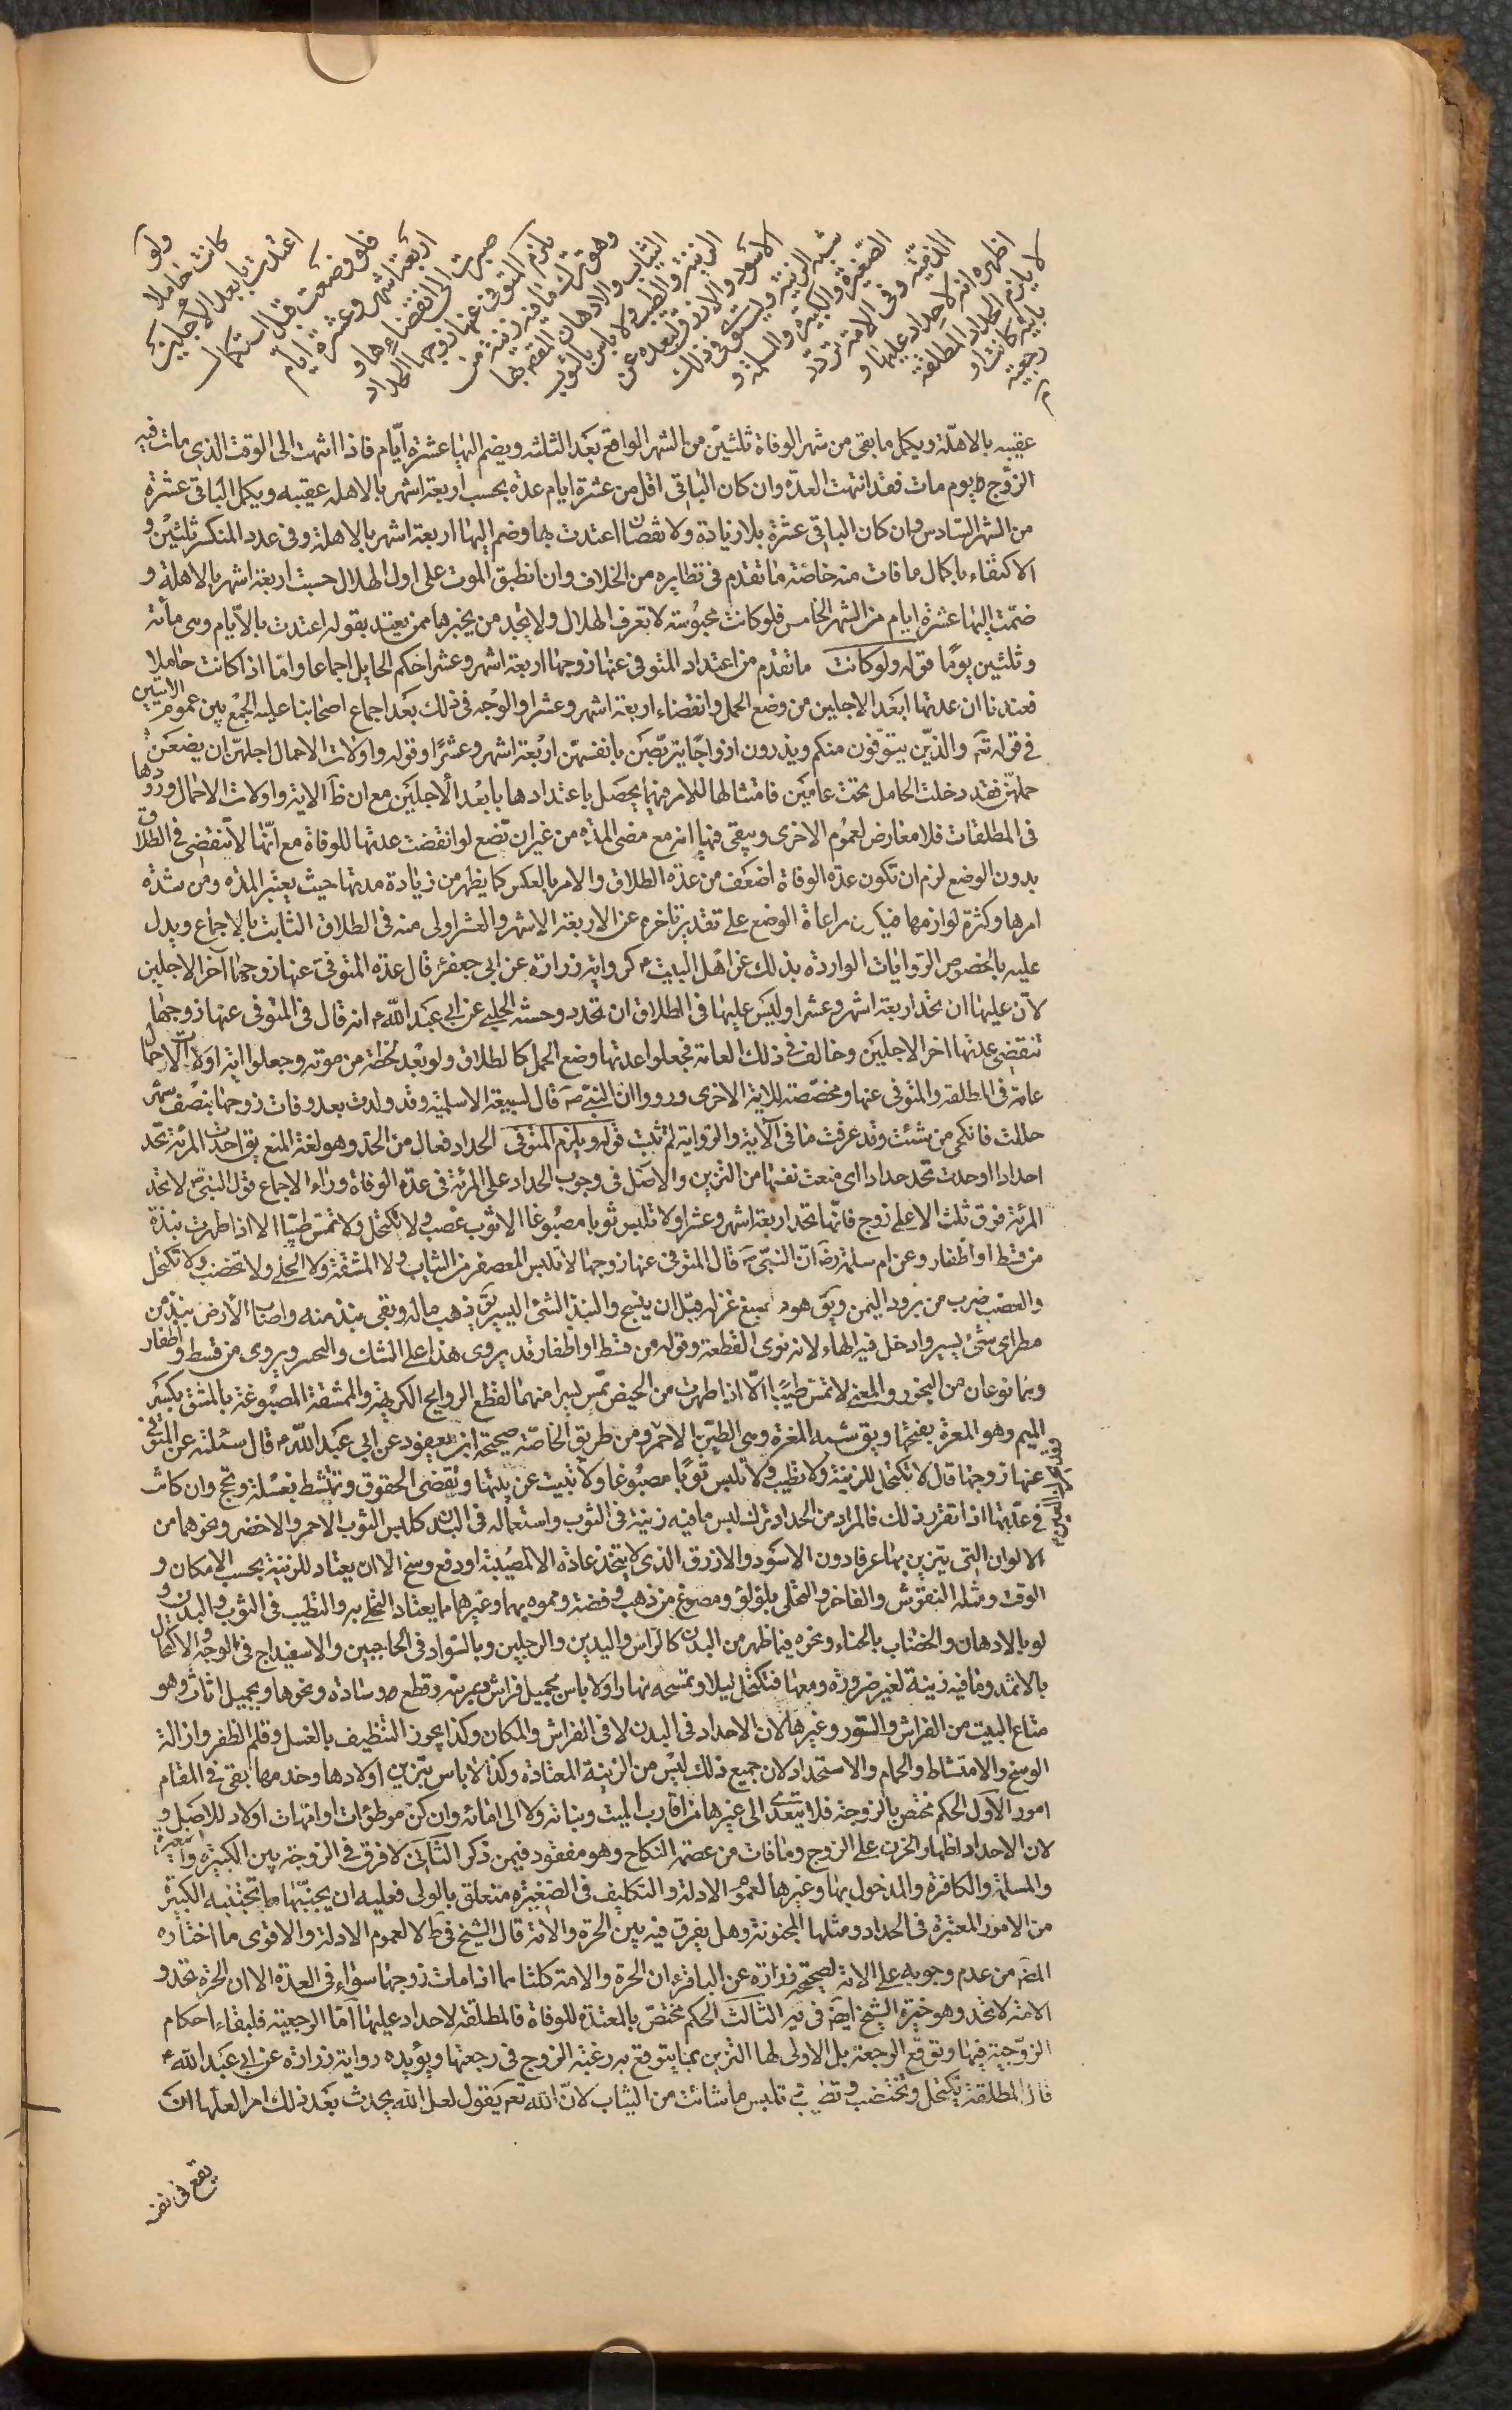 ولو
كانت حاملا
اعتدت بابعد الاجلين
فلو وضعت قبل استكمال
اربعة اشهر وعشرة ايام
صبرت الى انقضاءها و
يلزم المتوفى عنها زوجها الحداد
وهو ترك ما فيه زينة من
الثياب والادهان المقصد بها
الزينة والطيب ولا باس بالثوب
الاسود والازرق لبعده عن
شبه الزينة ويستوى فى ذلك
الصغيرة والكبيرة والمسلمة و
الذمية وفى الامة تردد
اظهره انه لا حداد عليها و
لا يلزم الحداد المطلقة
باينة كانت او
رجعية
عقيبه بالاهلة ويكمل ما بقى من شهر الوفاة ثلثين من الشهر الواقع بعد الثلثه ويضم اليها عشرة ايّام فاذا انتهت الى الوقت الذى مات فيه
الزوج يوم مات فقد انتهت العدة وان كان الباقى اقل من عشرة ايام عدة بحسب اربعة اشهر بالاهله عقيبه ويكمل الباقى عشرة
من الشهر السادس وان كان الباقى عشرة بلا زيادة ولا نقصان اعتدت بها وضم اليها اربعة اشهر بالاهلة وفى عدد المنكسر ثلثين و
الاكتفاء باكمال ما فات منه خاصة ما تقدم فى نظايره من الخلاف وان انطبق الموت على اول الهلال حسبت اربعة اشهر بالاهلة و
ضمّت اليها عشرة ايام من الشهر الخامس فلو كانت محبوسة لا تعرف الهلال ولا تجد من يخبرها ممن يعتد بقوله اعتدت بالايام وهى مائة
وثلثين يومًا قوله ولو كانت ما تقدم من اعتداد المتوفى عنها زوجها اربعة اشهر وعشرا حكم الحايل اجماعا وامّا اذا كانت حاملا
فعندنا ان عدتها ابعد الاجلين من وضع الحمل وانقضاء اربعة اشهر وعشرا والوجه فى ذلك بعد اجماع اصحابنا عليه الجمع بين عموم الايتين
فى قوله تع والذين يتوفون منكم ويذرون ازواجًا يتربصن بانفسهن اربعة اشهر وعشرًا وقوله واولات الاحمال اجلهن ان يضعن
حملهن فقد دخلت الحامل تحت عامين فامتثالها للامر فيهما يحصل باعتدادها بابعد الاجلين مع ان ظ الاية واولات الاحمال ورودها
فى المطلقات فلا معارض لعموم الاخرى ويبقى فيها انه مع مضى المدة من غير ان تضع لو انقضت عدتها للوفاة مع انّها لا تنقضى فى الطلاق
بدون الوضع لزم ان تكون عدة الوفاة اضعف من عدة الطلاق والامر بالعكس كما يظهر من زيادة مدتها حيث يعتبر المدة ومن شدة
امرها وكثرة لوازمها فيكون مراعاة الوضع على تقدير تاخره عن الاربعة الاشهر والعشر اولى منه فى الطلاق الثابت بالاجماع ويدل
عليه بالخصوص الروايات الوارده بذلك عن اهل البيت ع كرواية زرارة عن ابى جعفر ع قال عدة المتوفى عنها زوجها آخر الاجلين
لان عليها ان تحد اربعة اشهر وعشرا وليس عليها فى الطلاق ان تحد وحسنة الحلبى عن ابى عبد الله ع انه قال فى المتوفى عنها زوجها
تنقضى عدتها اخر الاجلين وخالف فى ذلك العامة فجعلوا عدتها وضع الحمل كالطلاق ولو بعد لحظة من موته وجعلوا اية اولات الاحمال
عامة فى المطلقة والمتوفى عنها ومخصصة للاية الاخرى ورووا ان النبى ص قال لسبيعة الاسلمية وقد ولدت بعد وفات زوجها بنصف شهر
حللت فانكحى من شئت وقد عرفت ما فى الآية والرواية لم تثبت قوله ويلزم المتوفى الحداد فعال من الحد وهو لغة المنع يق احدّت المرئة تحد
احدادا وحدت تحد حدادا اى منعت نفسها من التزين والاصل فى وجوب الحداد على المرئة فى عدة الوفاة وراء الاجماع قول النبى ص لا تحد
المرئة فوق ثلث الا على زوج فانّها تحد اربعة اشهر وعشرا ولا تلبس ثوبا مصبوغا الا ثوب عصب ولا تكتحل ولا تمس طيبا الا اذا طهرت نبذة
من قسط او اظفار وعن ام سلمة رض ان النبى ص قال المتوفى عنها زوجها لا تلبس المعصفر من الثياب ولا المشقة ولا الحلى ولا تختضب ولا تكتحل
والعصب ضرب من برود اليمن ويق هو صبغ غزله قبل ان ينسج والنبذ الشئ اليسير يق ذهب ماله وبقى نبذ منه واصاب الارض نبذ من
مطر اى شئ يسير وادخل فيه الهاء لانه نوى القطعة وقوله من قسط او اظفار قد يروى هذا على الشك والتحير ويروى من قسط واظفار
وهما نوعان من البخور والمعنى لا تمس طيبًا الّا اذا طهرت من الحيض تمس يسيرا منهما لقطع الروايح الكريهة والممشقة المصبوغة بالمشق بكسر
الميم وهو المغرة بفتحها ويق شبه المغرة وهى الطين الاحمر ومن طريق الخاصة صحيحة ابن ابى يعفور عن ابى عبد الله ع قال سئلته عن المتوفى
عنها زوجها قال لا تكتحل للزينة ولا تطيب ولا تلبس ثوبًا مصبوغا ولا تبيت عن بيتها وتقضى الحقوق وتمتشط بغسلة وتحج وان كانت
فى عدّتها اذا تقرر ذلك فالمراد من الحداد ترك لبس ما فيه زينة فى الثوب واستعماله فى البدن كلبس الثوب الاحمر والاخضر ونحوهما من
الالوان التى يتزين بها عرفا دون الاسود والازرق الذى لا يتخذ عادة الا لمصيبة او دفع وسخ الا ان يعتاد للزينة بحسب الامكان و
الوقت ومثله النقوش والفاخر والتحلى بلؤلؤ ومصوغ من ذهب وفضة ومموه بهما وغيرهما مما يعتاد التحلى به والتطيب فى الثوب والبدن و
لو بالادهان والخضاب بالحناء ونحوه فيما ظهر من البدن كالراس واليدين والرجلين وبالسواد فى الحاجبين والاسفيداج فى الوجه والاكتحال
بالاثمد وما فيه زينة لغير ضرورة ومعها فتكتحل ليلا وتمسحه نهارا ولا باس بتجميل فراش ومرتبة وقطع ووسادة ونحوها وبجميل اثاث وهو
متاع البيت من الفراش والستور وغيرها لان الاحداد فى البدن لا فى الفراش والمكان وكذا يجوز التنظيف بالغسل وقلم الظفر وازالة
الوسخ والامتشاط والحمام والاستحداد لان جميع ذلك ليس من الزينة المعتادة وكذا لا باس بتزيين اولادها وخدمها بقى فى المقام
امور الاول الحكم مختص بالزوجة فلا يتعدى الى غيرها من اقارب الميت وبناته ولا الى امائه وان كن موطؤات او امهات اولاد للاصل و
لان الاحداد اظهار الحزن على الزوج وما فات من عصمة النكاح وهو مفقود فيمن ذكر الثانى لا فرق فى الزوجة بين الكبيرة والصغيرة
والمسلمة والكافرة والمدخول بها وغيرها لعموم الادلة والتكليف فى الصغيرة متعلق بالولى فعليه ان يجنّبها ما تجتنبه الكبيرة
من الامور المعتبرة فى الحداد ومثلها المجنونة وهل يفرق فيه بين الحرة والامة قال الشيخ فى ط لا لعموم الادلة والاقوى ما اختاره
المص من عدم وجوبه على الامة لصحيحة زرارة عن الباقر ع ان الحرة والامة كلتاهما اذا مات زوجها سواء فى العدة الا ان الحرة تحد و
الامة لا تحد وهو خيرة الشيخ ايض فى يه الثالث الحكم مختصّ بالمعتدة للوفاة فالمطلقة لا حداد عليها امّا الرجعية فلبقاء احكام
الزوجية فيها وتوقع الرجعة بل الاولى لها التزين بما يتوقع به رغبة الزوج فى رجعتها ويؤيده رواية زرارة عن ابى عبد الله ع
قال المطلقة تكتحل وتختضب وتطيب وتلبس ما شائت من الثياب لانّ الله تع يقول لعل الله يحدث بعد ذلك امرا لعلها ان
يقع فى نفسه